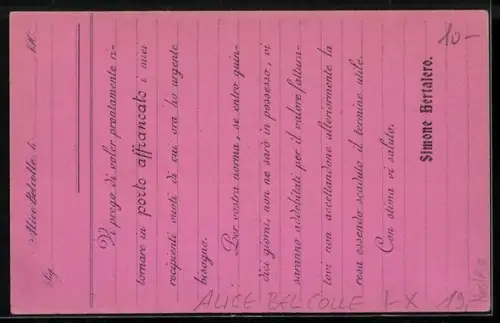 Alice Belcolle, li 190
Sig.
Vi prego di voler prontamente ri-
tornare in porto affrancato i miei
recipienti vuoti di cui ora ho urgente
bisogno.
Per vostra norma, se entro quin-
dici giorni non ne sarò in possesso, vi
saranno addebitati per il valore fattura-
tovi non accettandone ulteriormente la
resa essendo scaduto il termine utile.
Con stima vi saluto.
Simone Bertalero.
10-
ALICE BELCOLLE I-X 19,-